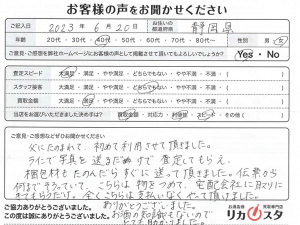 お客様の声をお聞かせください
ご記入日 2023年 6月 20日 お住いの都道府県 静岡県
年齢 20代・30代・40代・50代・60代・70代・80代～ 性別 男・女
ご意見・ご感想を弊社ホームページにお客様の声として掲載させて頂いてもよろしいでしょうか？ Yes・No
査定スピード 大満足・満足・どちらでもない・やや不満・不満・( )
スタッフ接客 大満足・満足・どちらでもない・やや不満・不満・( )
買取金額 大満足・満足・どちらでもない・やや不満・不満・( )
当店をお選びいただきました決め手は？ 買取金額・対応力・利便性・スピード・その他( )
ご意見・ご感想などぜひお聞かせください
父にたのまれて、初めて利用させて頂きました。
ラインで写真を送るだけで査定してもらえ、
梱包材もたのんだらすぐに送って頂きました。伝票から
何まで そろっていて、こちらは物をつめて、宅配会社に取りに
きてもらうだけ。全くこちらは支払いなくやって頂けました。
ありがとうございました。
お酒の知識もないので
とても助かりました。
ご協力ありがとうございました。
この度は誠にありがとうございました。
お酒買取専門店
リカスタ